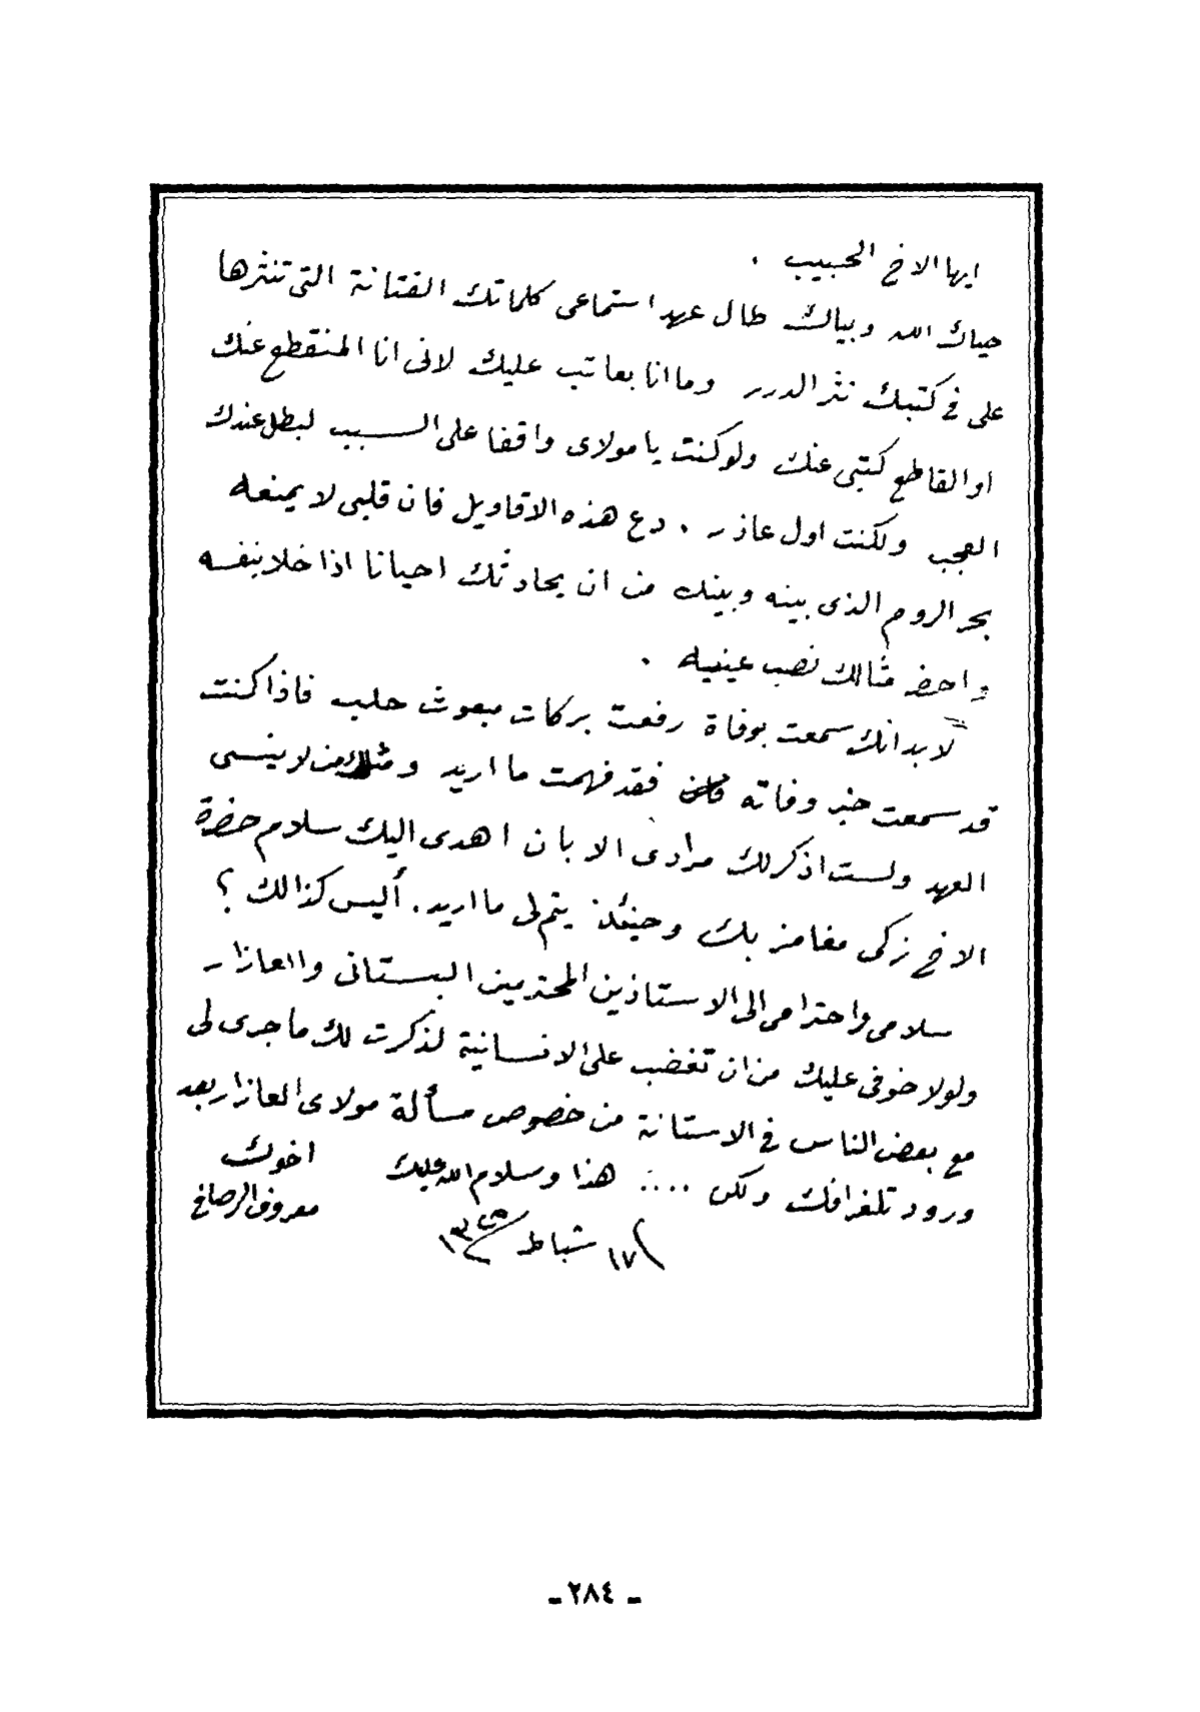 ايها الاخ الحبيب .
حياك الله وبياك طال عهد استماعى كلماتك الفتانة التى تنثرها
على فى كتبك نثر الدرر وما انا بعاتب عليك لانى انا المنقطع عنك
او القاطع كتبى عنك ولو كنت يا مولاى واقفا على السبب لبطل عندك
العجب ولكنت اول عاذر . دع هذه الاقاويل فان قلبى لا يمنعه
بحر الروم الذى بينه وبينك من ان يحادثك احيانا اذا خلا بنفسه
واحضر مثالك نصب عينيه .
لابد انك سمعت بوفاة رفعت بركات مبعوث حلب فاذا كنت
قد سمعت خبر وفاته فقد فهمت ما اريد ومثلك من لا ينسى
العهد ولست اذكر لك مرادى الا بان اهدى اليك سلام حضرة
الاخ زكى مغامز بك وحينئذ يتم لى ما اريد . أليس كذالك ؟
سلامى واحترامى الى الاستاذين المحترمين البستانى والعازار
ولولا خوفى عليك من ان تغضب على الانسانية لذكرت لك ما جرى لى
مع بعض الناس فى الاستانة من خصوص مسألة مولاى العازار بعد
ورود تلغرافك ولكن .... هذا وسلام الله عليك
اخوك
معروف الرصافى
١٧ شباط
- ٢٨٤ -